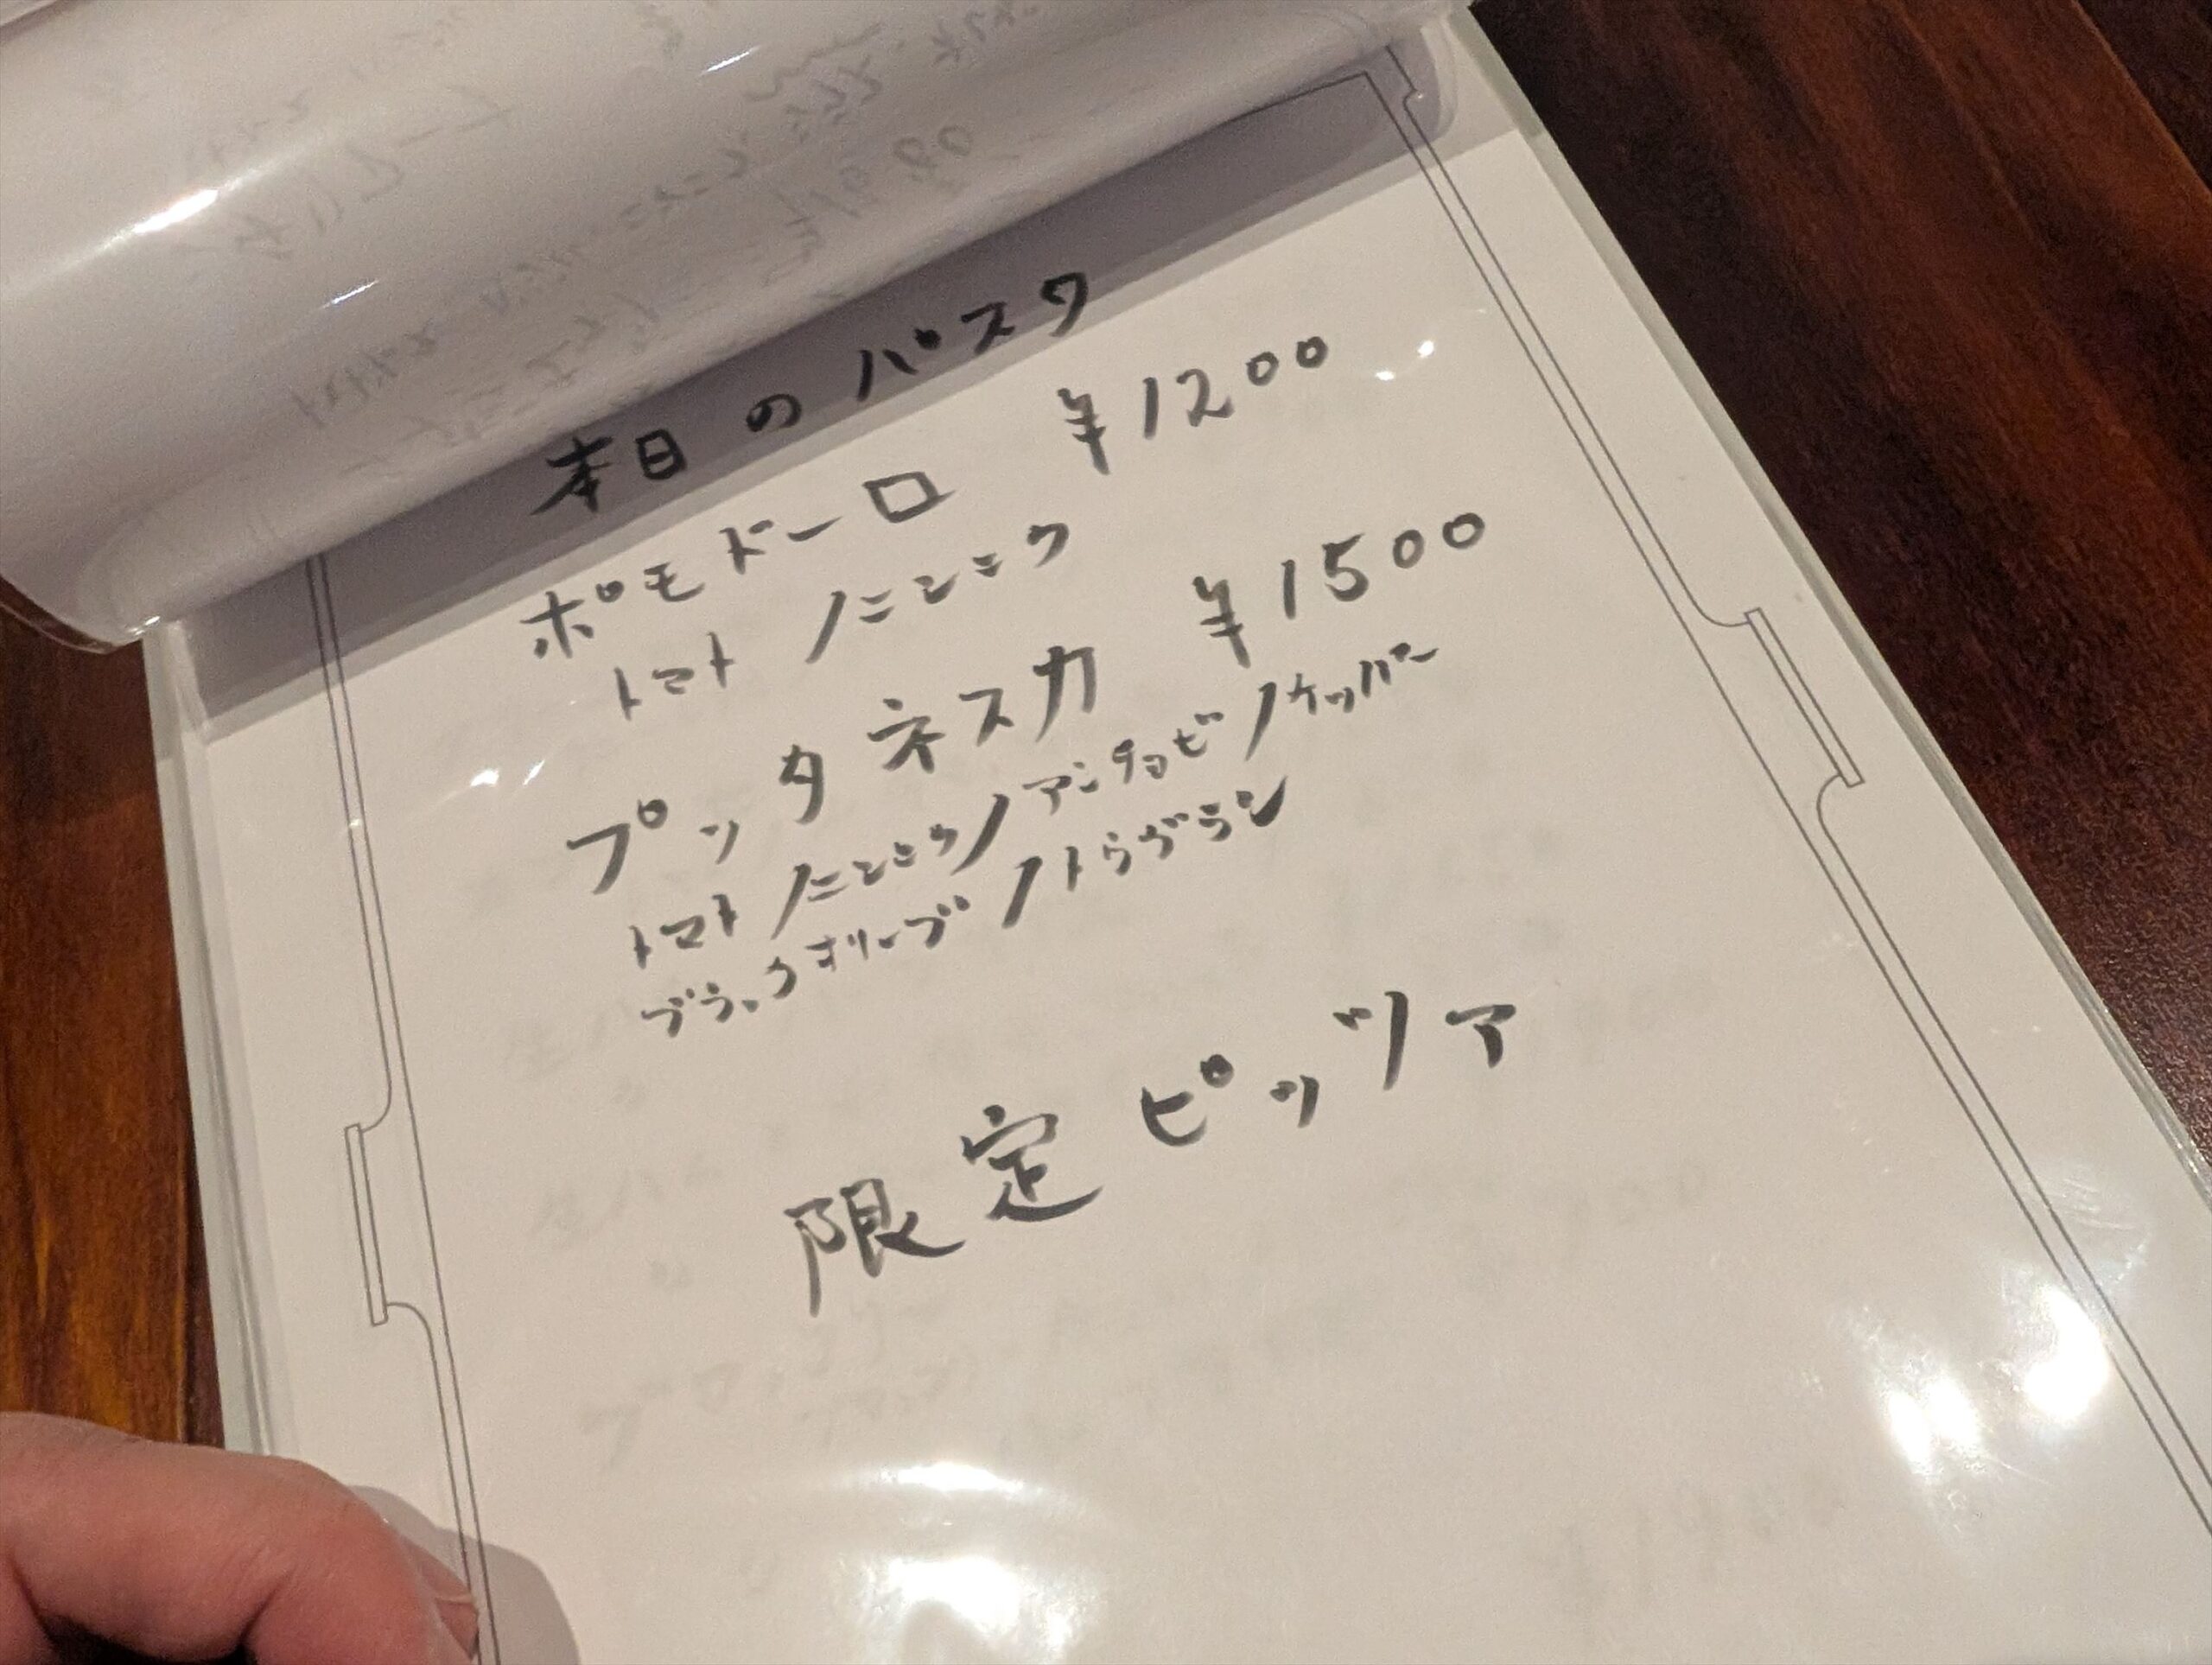 本日のパスタ
ポモドーロ ¥1200
トマト/ニンニク
プッタネスカ ¥1500
トマト/ニンニク/アンチョビ/ケッパー
ブラックオリーブ/トウガラシ
限定ピッツァ